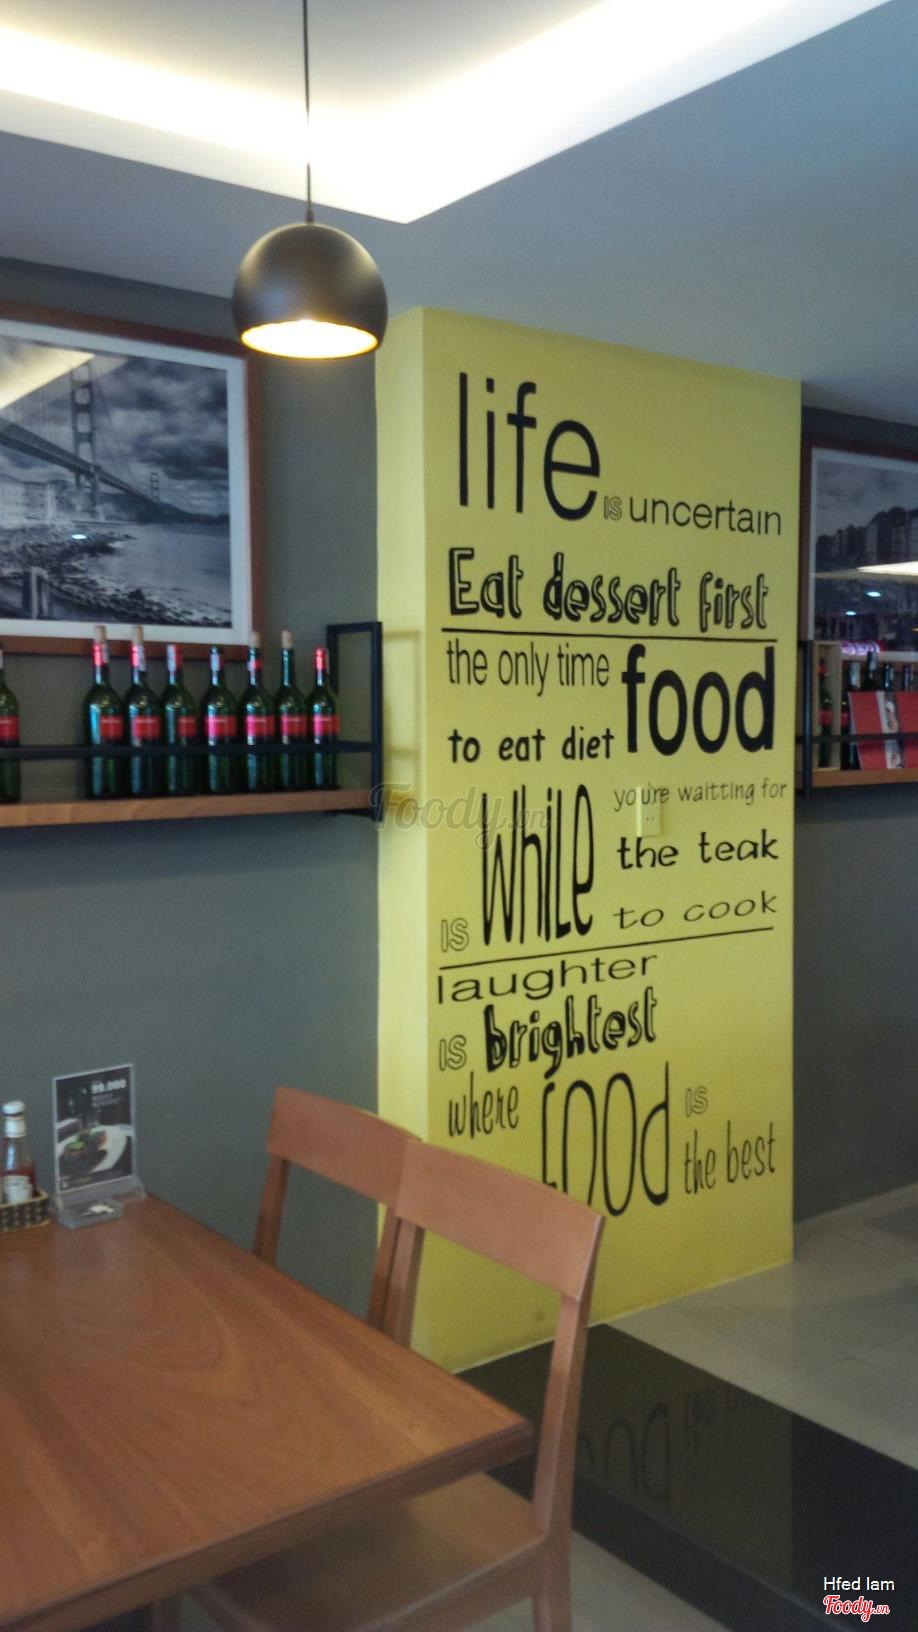 life is uncertain
Eat dessert first
the only time food
to eat diet
is while you're waitting for
the teak
to cook
laughter
is brightest
where food is
the best
99.000
Foody.vn
Hfed lam
Foody.vn